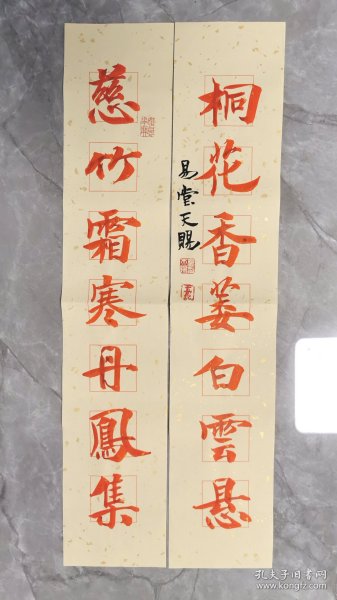 桐花香萎白雲悬
易堂天賜
慈竹霜寒丹鳳集
孔夫子旧书网
www.kongfz.com